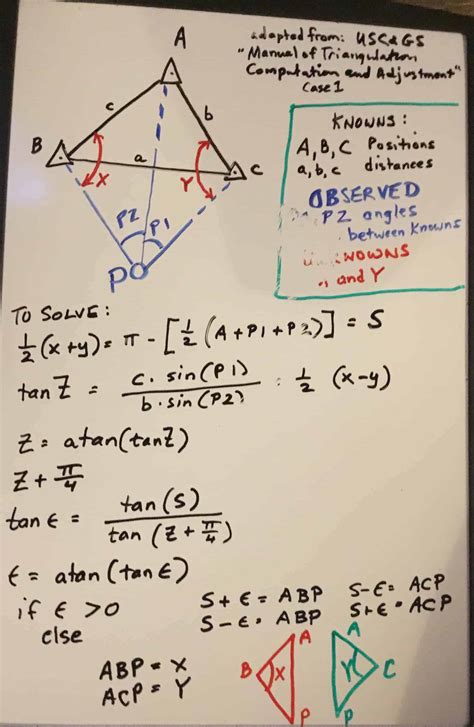 adapted from: USC&GS
"Manual of Triangulation
Computation and Adjustment"
Case 1
A
c
b
B
a
C
X
Y
P2
P1
P
KNOWNS:
A, B, C Positions
a, b, c distances
OBSERVED
P2 angles
between Knowns
NOWNS
and Y
TO SOLVE:
½(x+y) = π - [½(A+P1+P2)] = S
tan Z = c · sin(P1) / b · sin(P2) : ½ (x-y)
Z = atan(tanZ)
Z + π/4
tan ε = tan(S) / tan(Z + π/4)
ε = atan(tan ε)
if ε > 0 S + ε = ABP S - ε = ACP
else S - ε = ABP S + ε = ACP
ABP = X
ACP = Y
A
B X
P
A
Y C
P